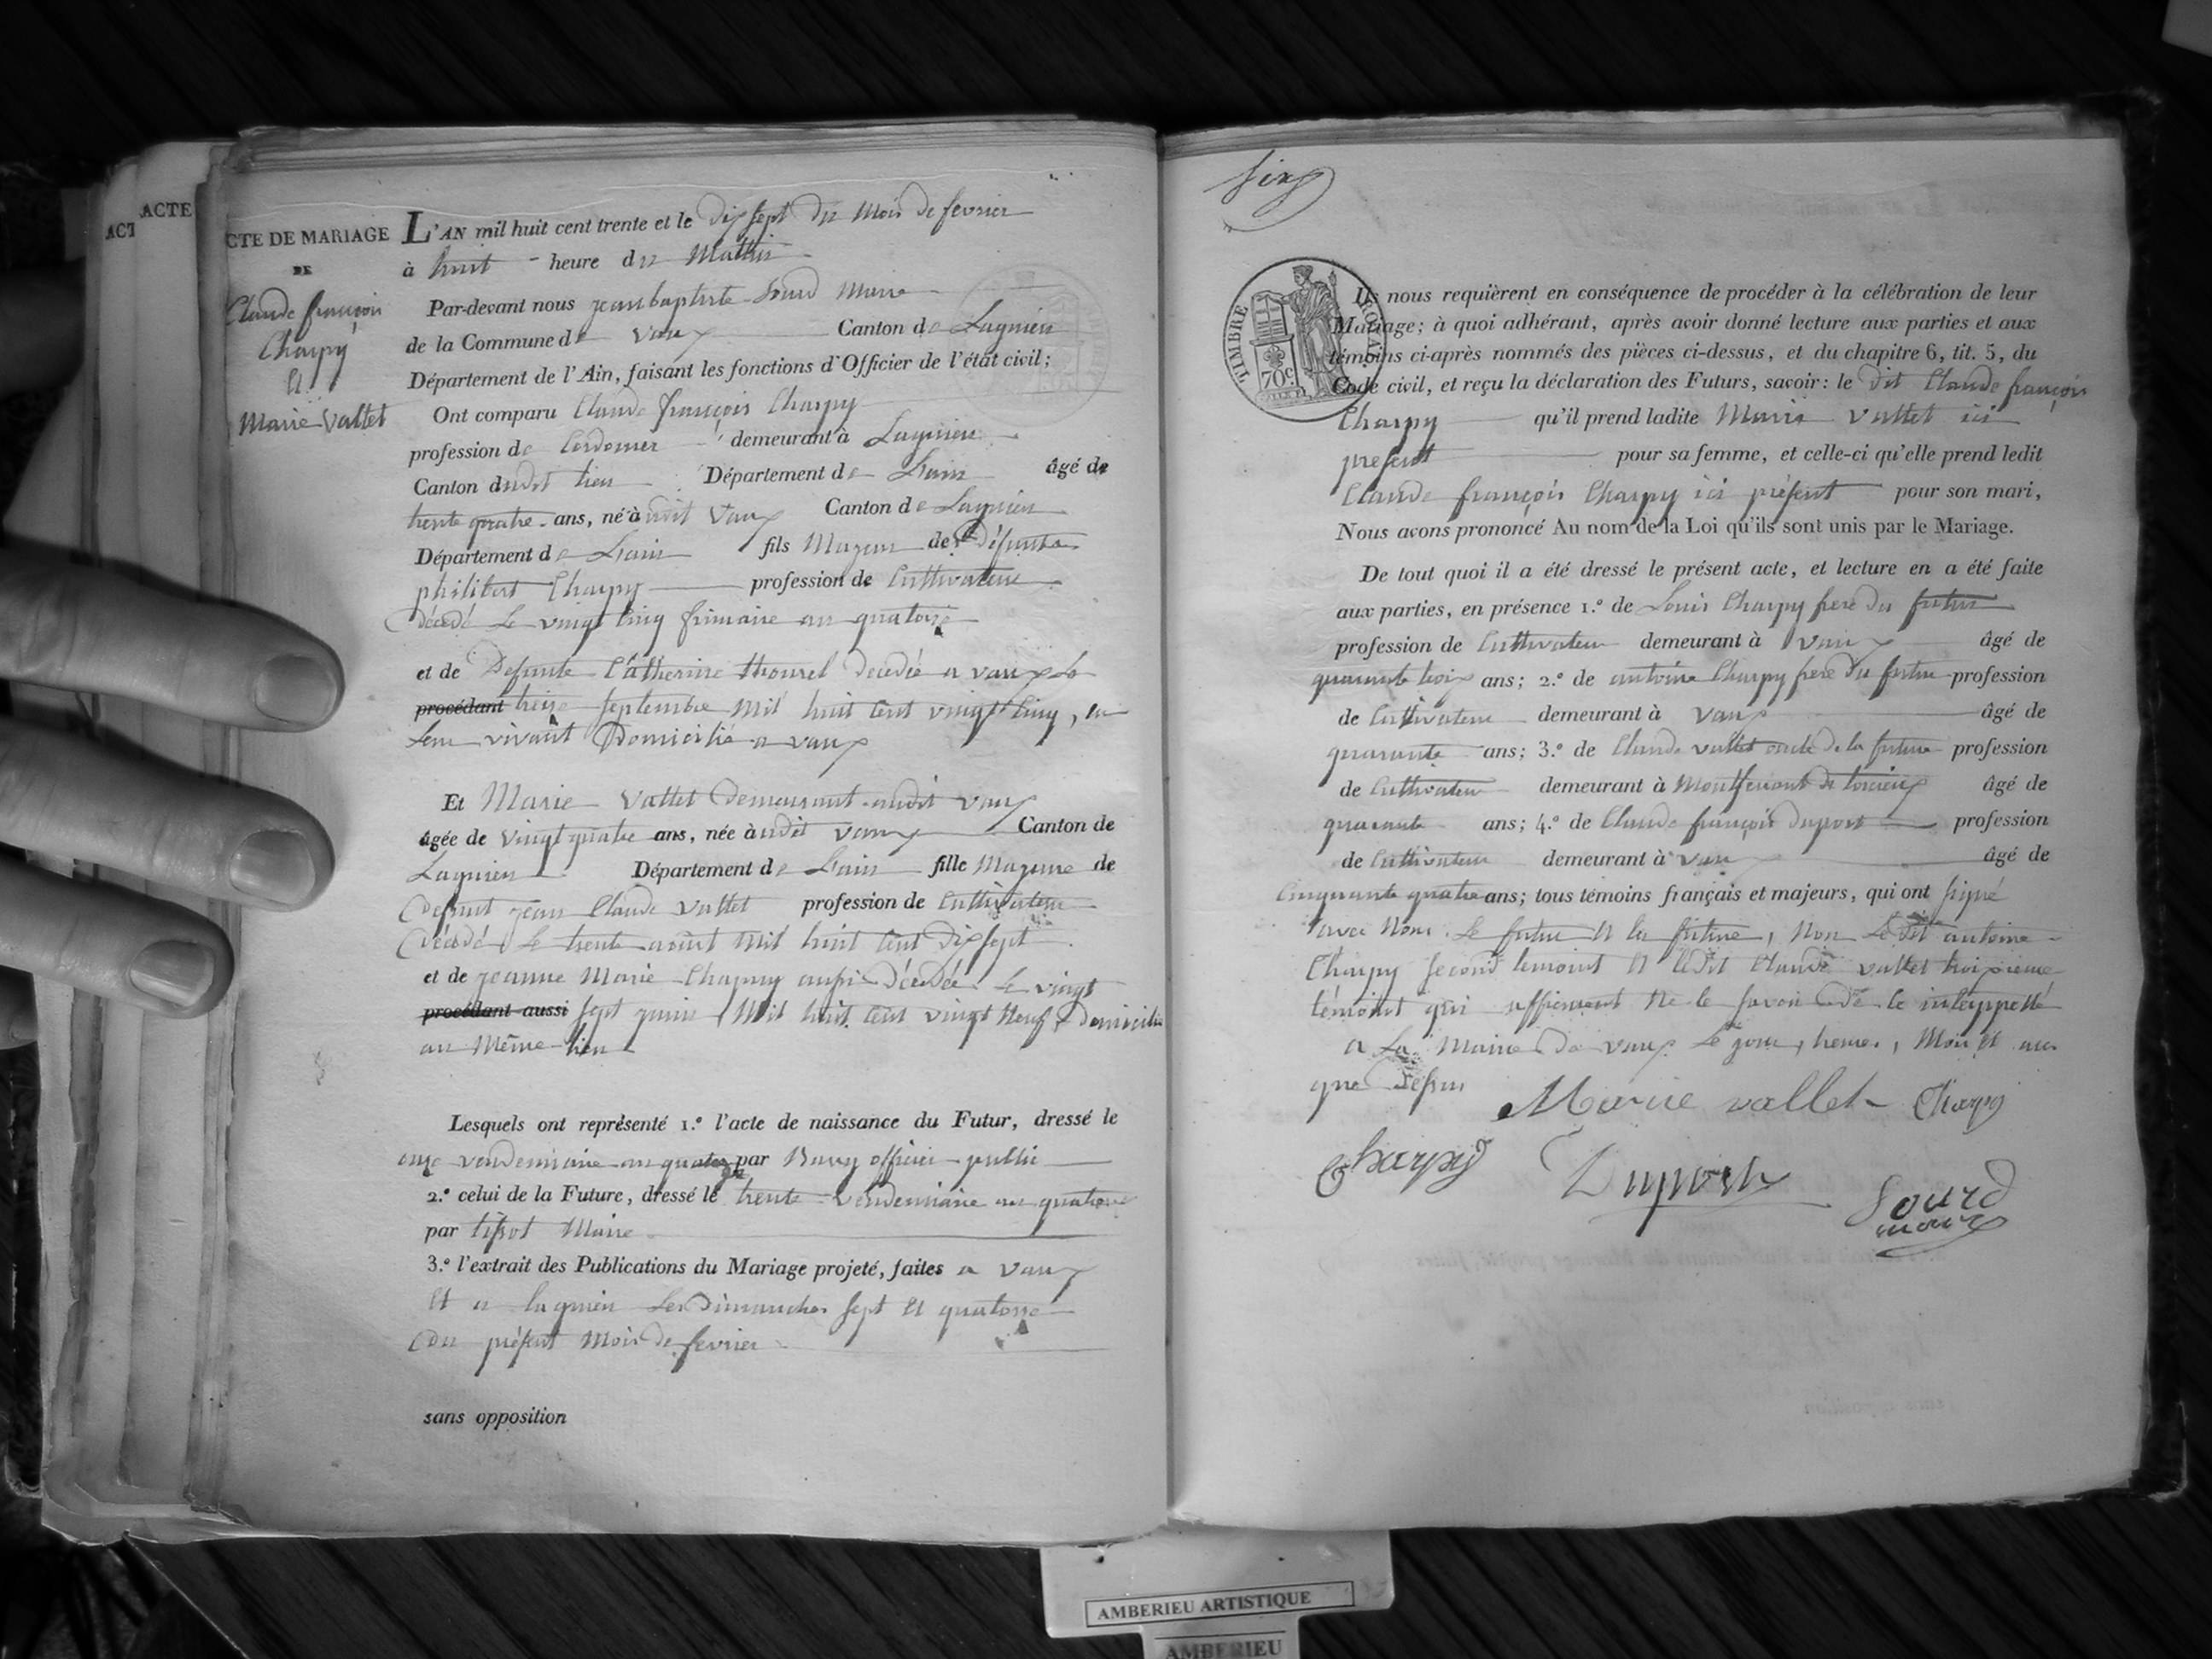 ACT
ACTE
CTE DE MARIAGE
DE
Claude françois
Charpy
et
Marie Vallet
L'AN mil huit cent trente et le dix sept du mois de fevrier
à huit heure du Mattin
Par-devant nous jean baptiste Sourd Maire
de la Commune de Vaux Canton de Lagnieu
Département de l'Ain, faisant les fonctions d'Officier de l'état civil;
Ont comparu Claude françois Charpy
profession de Cordonier demeurant à Lagnieu
Canton dudit lieu Département de Lain âgé de
trente quatre ans, né à Vaux Canton de Lagnieu
Département de Lain fils Majeur de Défunts
philibert Charpy profession de Cultivateur
décédé le vingt cinq frimaire an quatorze
et de Defunte Catherine thourel decedée a vaux le
procédant treize septembre mil huit cent vingt cinq, en
leur vivant Domicilié a vaux
Et Marie Vallet Demeurant audit vaux
âgée de vingt quatre ans, née àudit vaux Canton de
Lagnieu Département de Lain fille Majeure de
Defunt jean Claude Vallet profession de Cultivateur
Décédé le trente aout mil huit cent dix sept
et de jeanne Marie Charpy aussi décédée le vingt
procédant aussi sept juin Mil huit cent vingt neuf, domicilié
au Même lieu
Lesquels ont représenté 1.º l'acte de naissance du Futur, dressé le
onze vendemiaire an quatre par officier public
2.º celui de la Future, dressé le trente vendemiaire an quatorze
par tissot Maire
3.º l'extrait des Publications du Mariage projeté, faites a vaux
et a lagnieu les Dimanches sept et quatorze
du présent Mois de fevrier
sans opposition
TIMBRE ROYAL
70 C.
Ils nous requièrent en conséquence de procéder à la célébration de leur
Mariage; à quoi adhérant, après avoir donné lecture aux parties et aux
témoins ci-après nommés des pièces ci-dessus, et du chapitre 6, tit. 5, du
Code civil, et reçu la déclaration des Futurs, savoir: le dit Claude françois
Charpy qu'il prend ladite Marie Vallet ici
present pour sa femme, et celle-ci qu'elle prend ledit
Claude françois Charpy ici présent pour son mari,
Nous avons prononcé Au nom de la Loi qu'ils sont unis par le Mariage.
De tout quoi il a été dressé le présent acte, et lecture en a été faite
aux parties, en présence 1.º de Louis Charpy frere du futur
profession de Cultivateur demeurant à vaux âgé de
quarante trois ans; 2.º de antoine Charpy frere du futur profession
de Cultivateur demeurant à vaux âgé de
quarante ans; 3.º de Claude vallet oncle de la future profession
de Cultivateur demeurant à Montferrant de torcieux âgé de
quarante ans; 4.º de Claude françois duport profession
de Cultivateur demeurant à vaux âgé de
Cinquante quatre ans; tous témoins français et majeurs, qui ont signé
avec Nous le futur et la future, Non le dit antoine
Charpy second temoint et ledit Claude vallet troisieme
témoint qui affirment ne le savoir de ce interppellé
a la Mairie de vaux le jour, heure, Mois et an
que dessus
Marie vallet Charpy
Charpy Duport Sourd
maire
AMBERIEU ARTISTIQUE
AMBERIEU